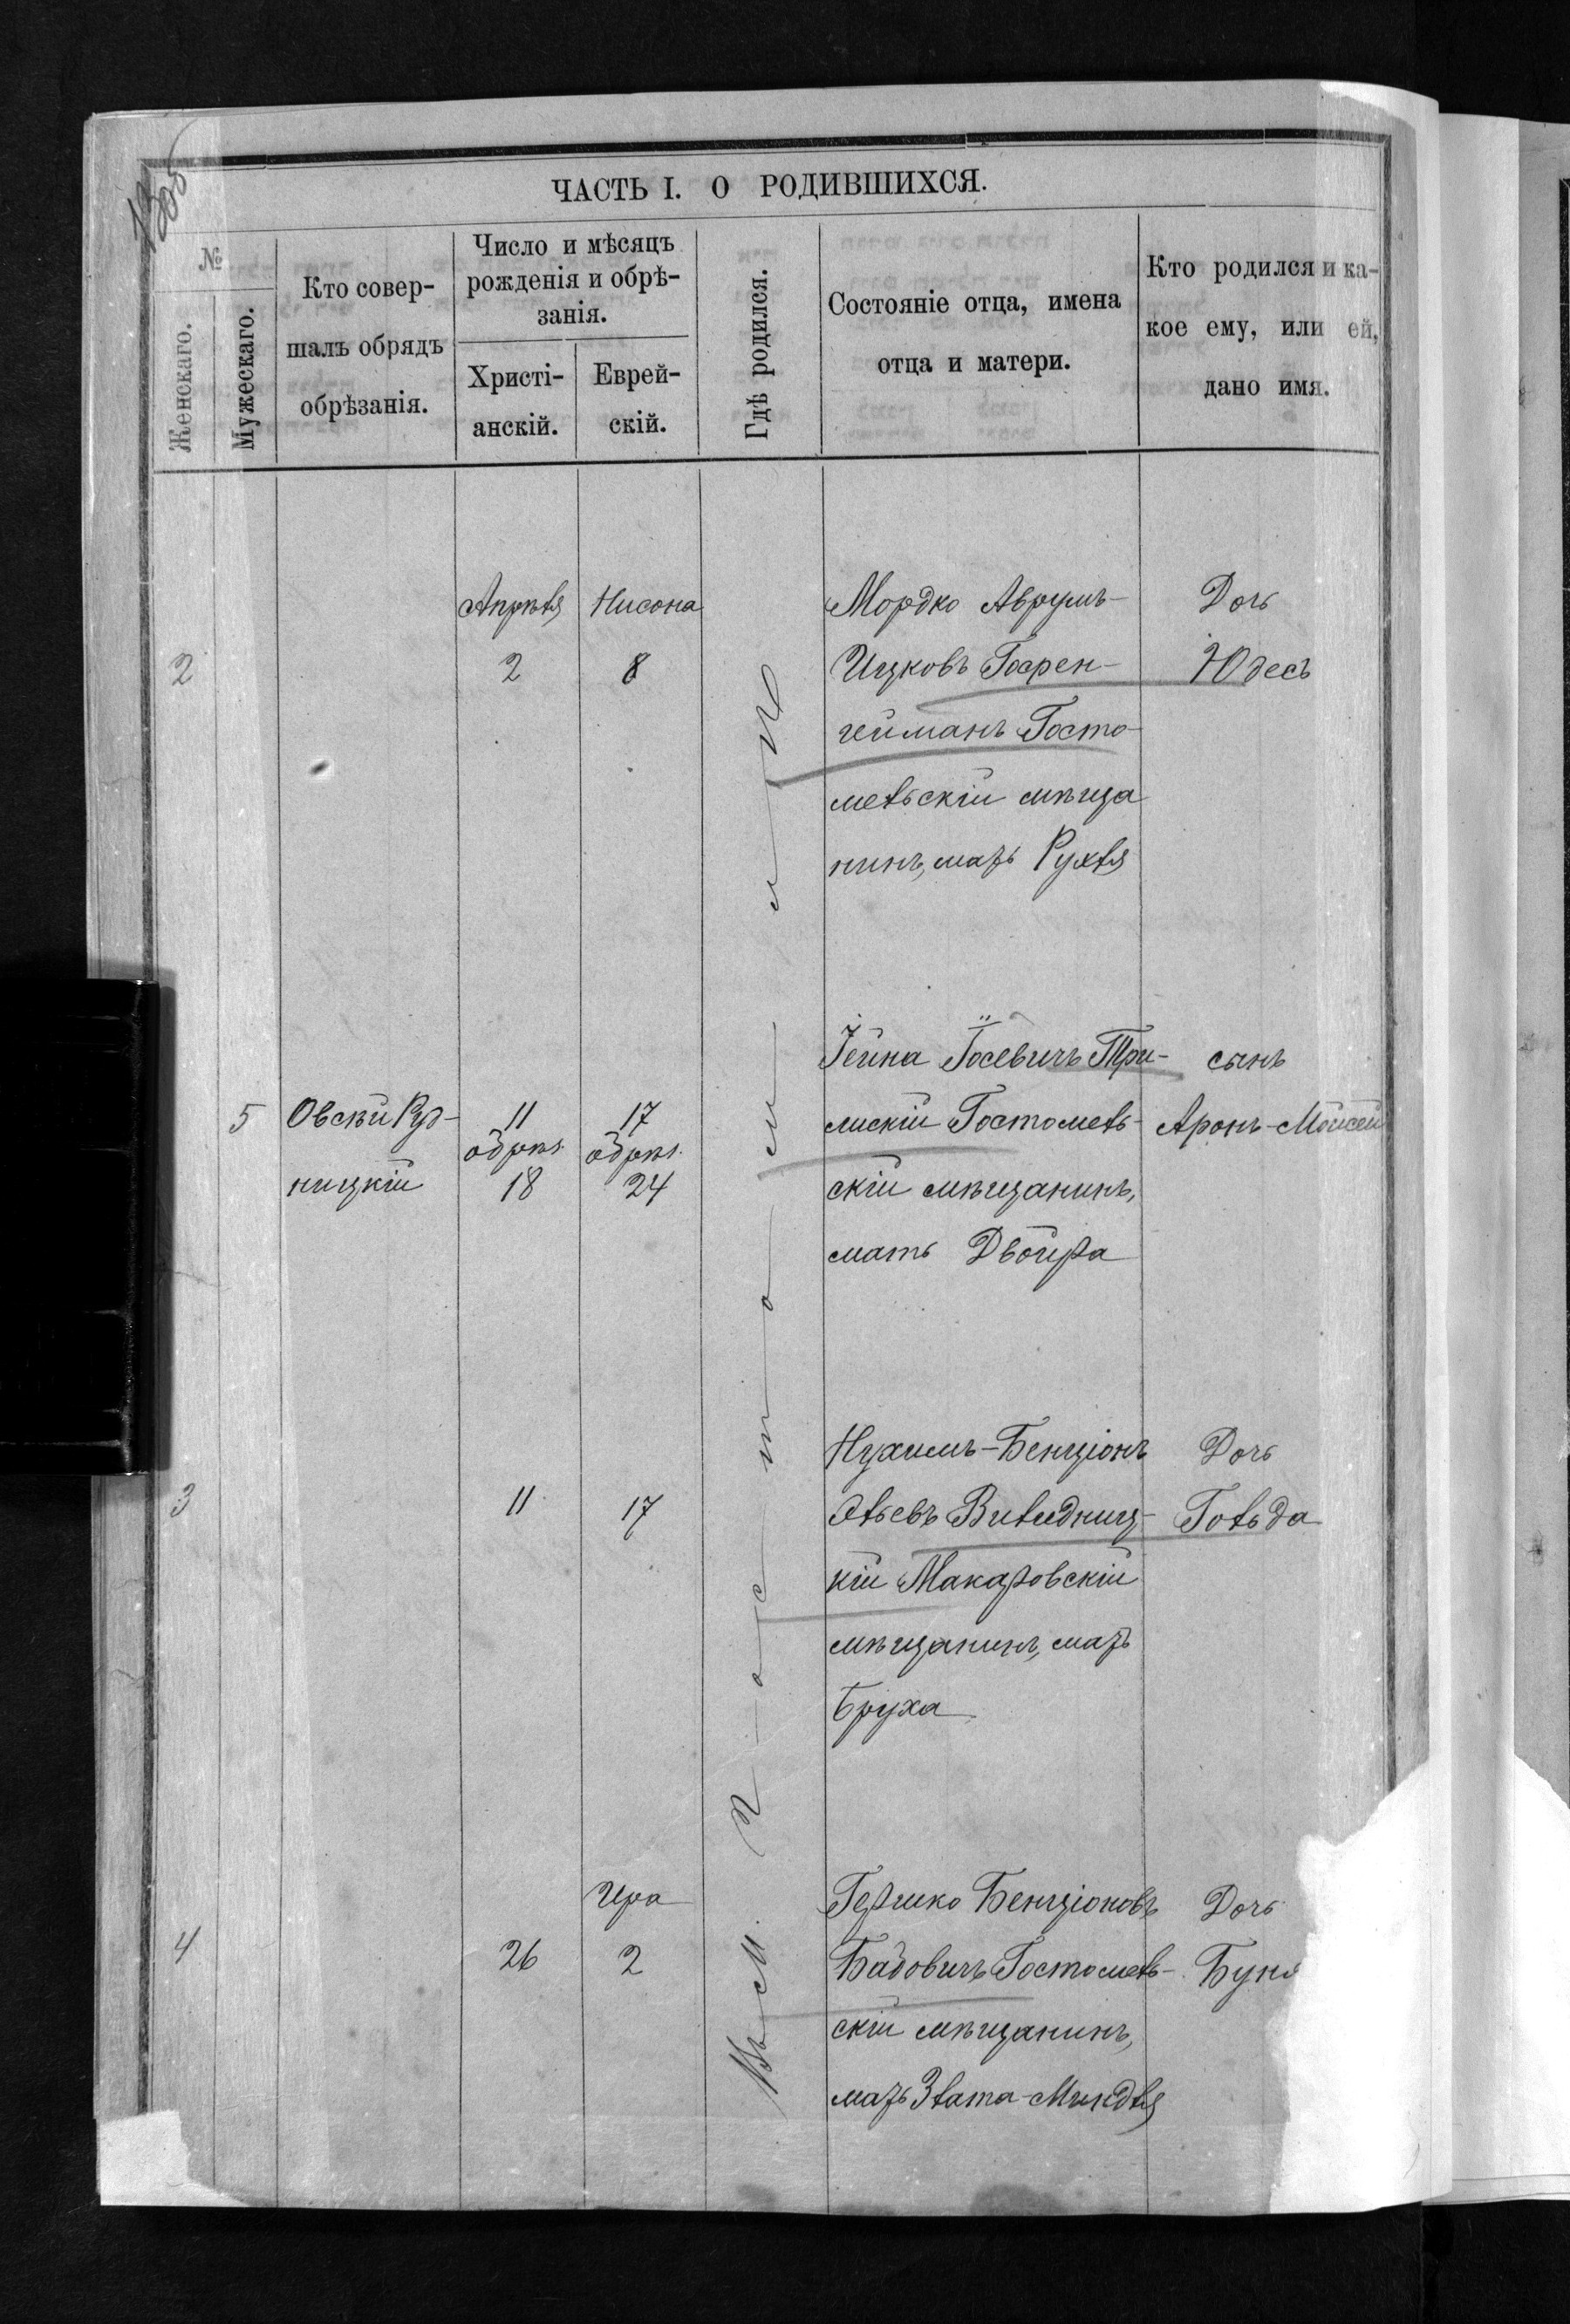 ЧАСТЬ I. О РОДИВШИХСЯ.
№
Женскаго.
Мужескаго.
Кто совер-
шалъ обрядъ
обрѣзанія.
Число и мѣсяцъ
рожденія и обрѣ-
занія.
Христі-
анскій.
Еврей-
скій.
Гдѣ родился.
Состояніе отца, имена
отца и матери.
Кто родился и ка-
кое ему, или ей,
дано имя.
Въ м. Гостомлѣ
2
Апрѣля
2
Нисона
8
Мордко Аврумъ-
Ицковъ Гофен-
гейманъ Госто-
мельскій мѣща
нинъ, мать Рухля
Дочь
Юдесь
5
Овсѣй Руд-
ницкій
11
обрѣз.
18
17
обрѣз.
24
Іейна Іосевичъ Три-
лискій Гостомель-
скій мѣщанинъ,
мать Двойра
сынъ
Аронъ-Мойсей
3
11
17
Нухимъ-Бенціонъ
Ельевъ Виледниц-
кій Макаровскій
мѣщанинъ, мать
Бруха
Дочь
Гольда
4
26
Ира
2
Гершко Бенціоновъ
Бабовичъ Гостомель-
скій мѣщанинъ,
мать Злата-Миндля
Дочь